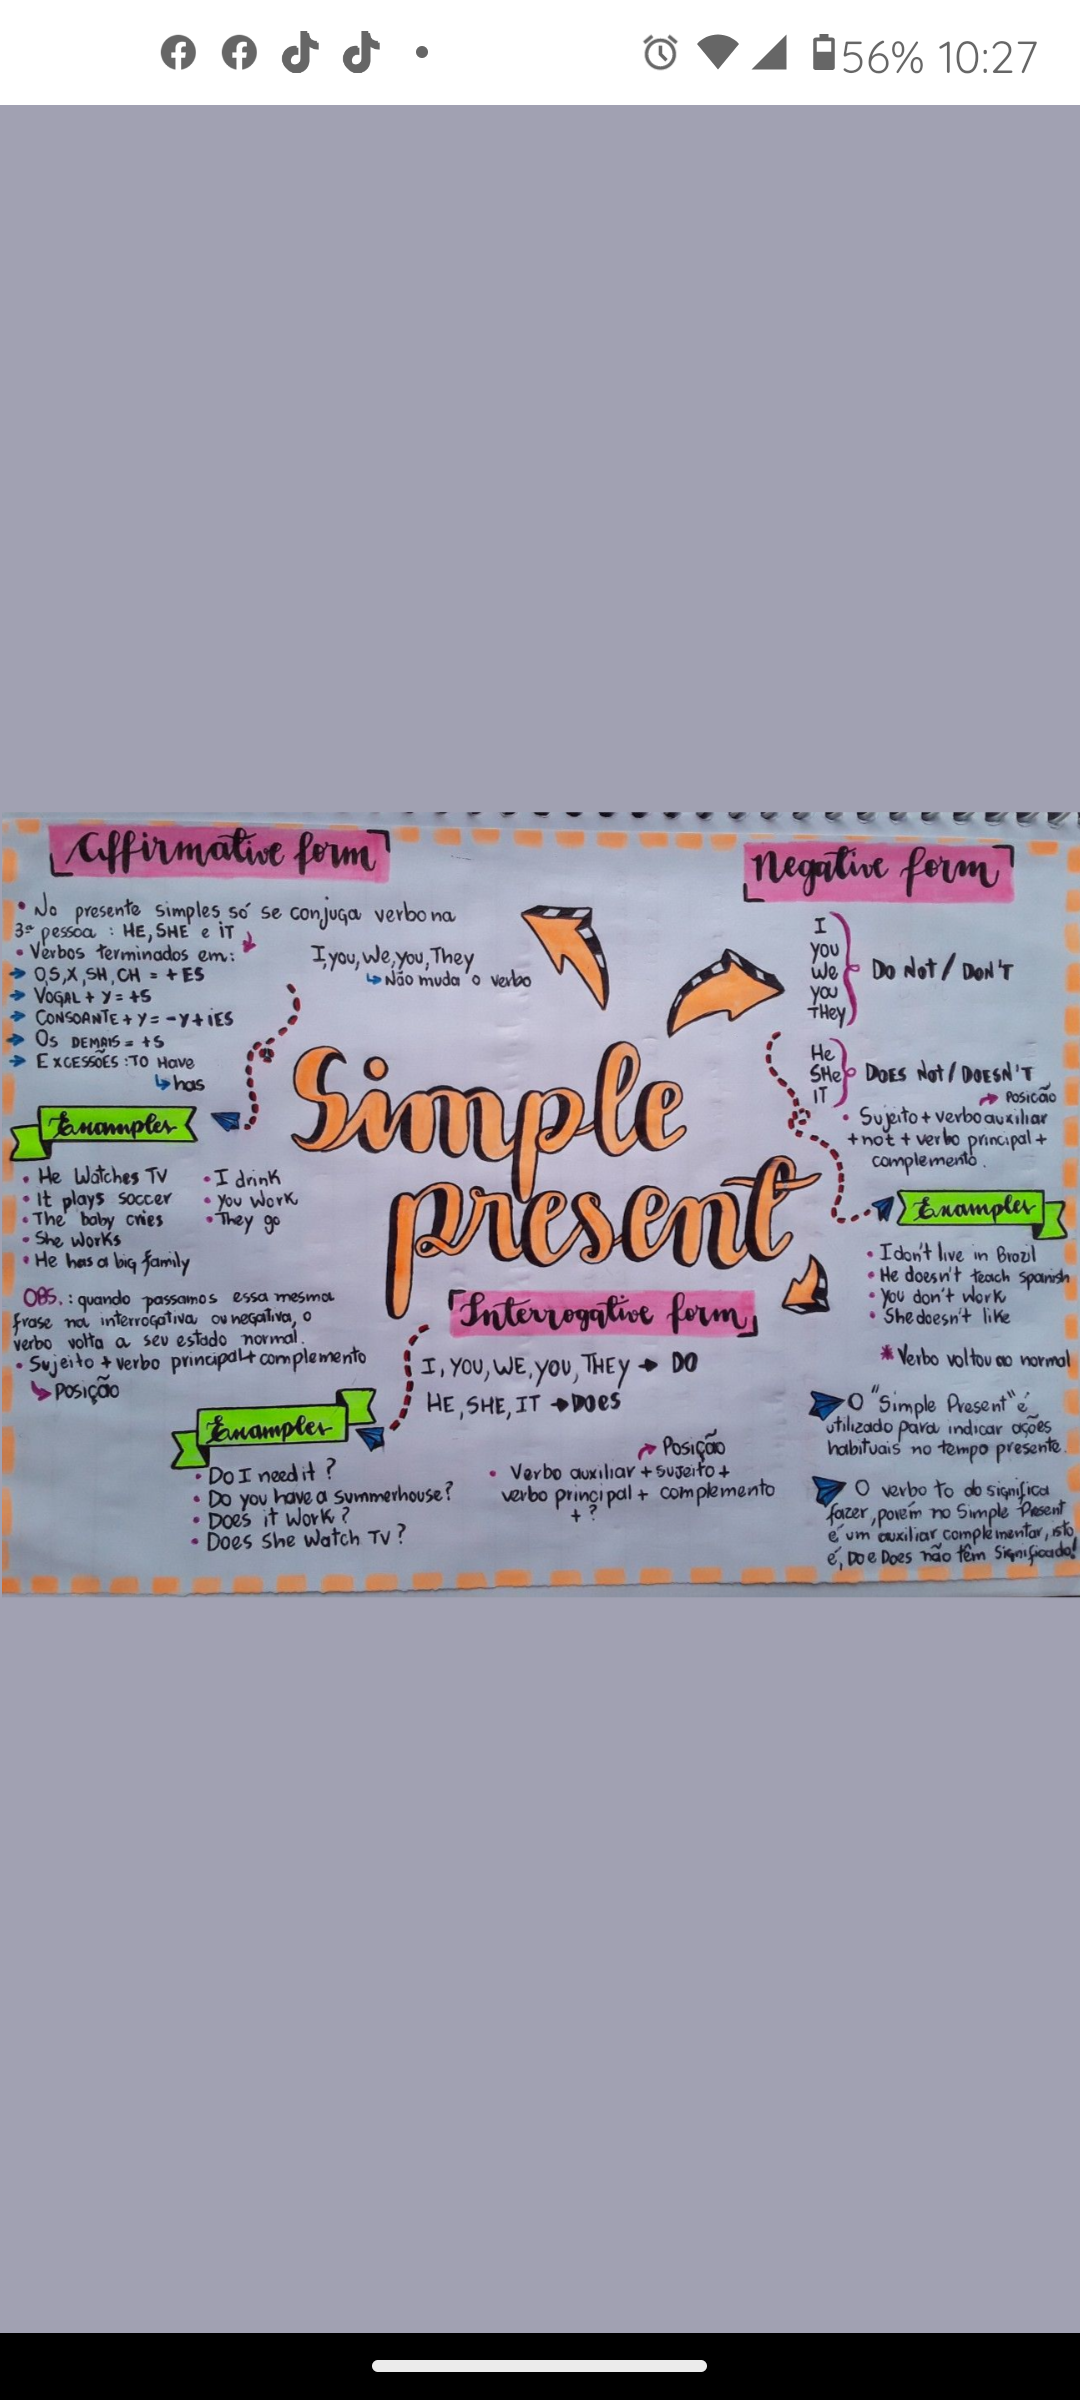 56% 10:27
Affirmative form
• No presente simples só se conjuga verbo na
3ª pessoa : HE, SHE e IT
• Verbos terminados em:
→ O,S,X,SH,CH = + ES
→ VOGAL + Y = +S
→ CONSOANTE + Y = -Y + IES
→ OS DEMAIS = +S
→ EXCESSÕES : TO Have
↳ has
I, you, We, you, They
↳ Não muda o verbo
Examples
• He Watches TV
• It plays soccer
• The baby cries
• She Works
• He has a big family
• I drink
• you Work
• They go
OBS. : quando passamos essa mesma
frase na interrogativa ou negativa, o
verbo volta a seu estado normal.
• Sujeito + verbo principal + complemento
↳ Posição
Simple
present
Negative form
I
you
We
you
THey
DO NOT / DON'T
He
SHe
IT
DOES NOT / DOESN'T
→ Posição
• Sujeito + verbo auxiliar
+ not + verbo principal +
complemento.
Examples
• I don't live in Brazil
• He doesn't teach spanish
• You don't work
• She doesn't like
* Verbo voltou ao normal
O "Simple Present" é
utilizado para indicar ações
habituais no tempo presente.
O verbo to do significa
fazer, porém no Simple Present
é um auxiliar complementar, isto
é, Do e Does não têm significado!
Interrogative form
I, YOU, WE, YOU, THEY → DO
HE, SHE, IT → DOES
→ Posição
• Verbo auxiliar + sujeito +
verbo principal + complemento
+ ?
Examples
• Do I need it ?
• Do you have a summerhouse?
• Does it Work ?
• Does She Watch TV ?